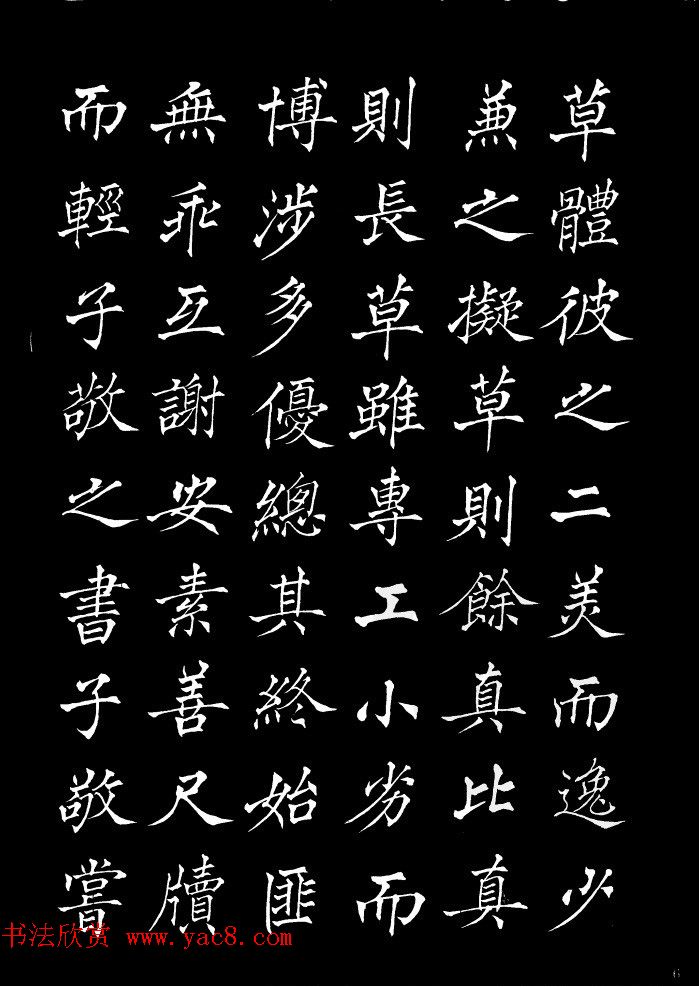 草體彼之二美而逸少
兼之擬草則餘真比真
則長草雖專工小劣而
博涉多優總其終始匪
無乖互謝安素善尺牘
而輕子敬之書子敬嘗
书法欣赏 www.yac8.com
6